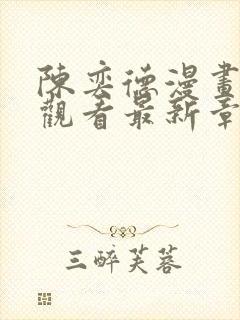 陳奕德漫畫
觀看最新章
三醉芙蓉